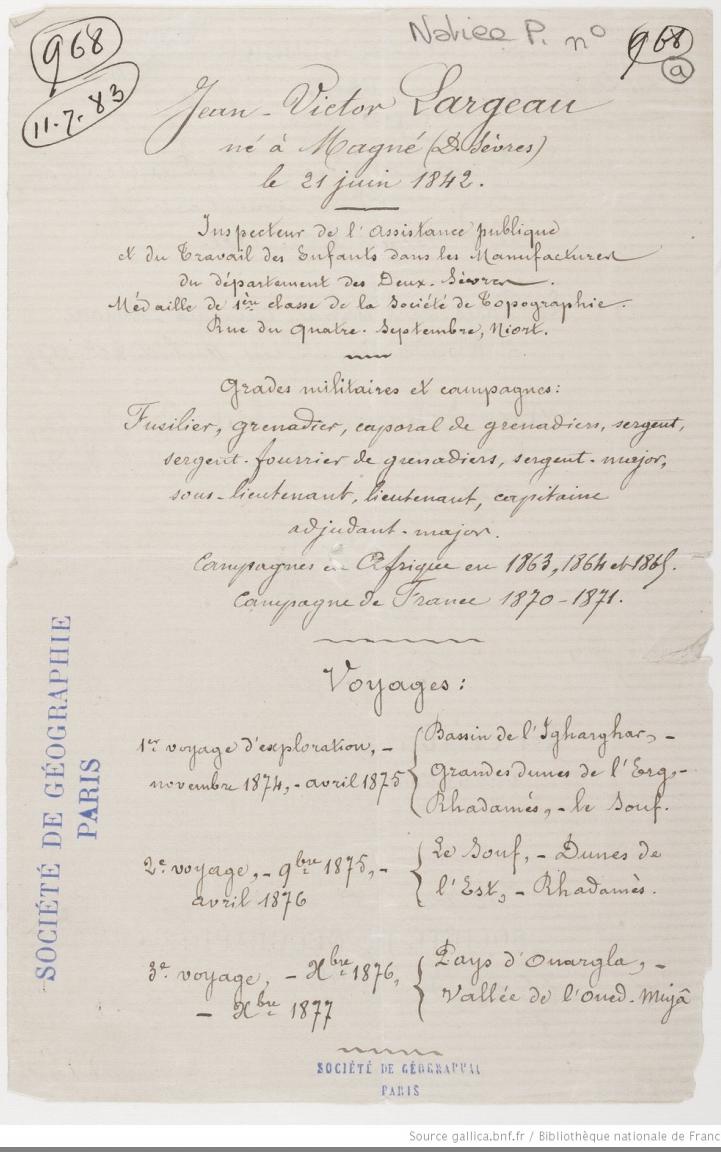 968
11.7.83
Notice P. nº 968
a
Jean-Victor Largeau
né à Magné (D. Sèvres)
le 21 juin 1842.
Inspecteur de l'Assistance publique
et du Travail des Enfants dans les Manufactures
du département des Deux-Sèvres.
Médaille de 1ère classe de la Société de Topographie.
Rue du Quatre-Septembre, Niort.
Grades militaires et campagnes:
Fusilier, grenadier, caporal de grenadiers, sergent,
sergent-fourrier de grenadiers, sergent-major,
sous-lieutenant, lieutenant, capitaine
adjudant-major.
Campagnes en Afrique en 1863, 1864 et 1865.
Campagne de France 1870-1871.
Voyages:
1er voyage d'exploration, -
novembre 1874, - avril 1875
Bassin de l'Igharghar, -
Grandes dunes de l'Erg, -
Rhadamès, - le Souf.
2e voyage, - 9bre 1875, -
avril 1876
Le Souf, - Dunes de
l'Est, - Rhadamès.
3e voyage, - Xbre 1876,
- Xbre 1877
Pays d'Ouargla, -
Vallée de l'Oued-Miyâ
SOCIÉTÉ DE GÉOGRAPHIE
PARIS
SOCIÉTÉ DE GÉOGRAPHIE
PARIS
Source gallica.bnf.fr / Bibliothèque nationale de Franc